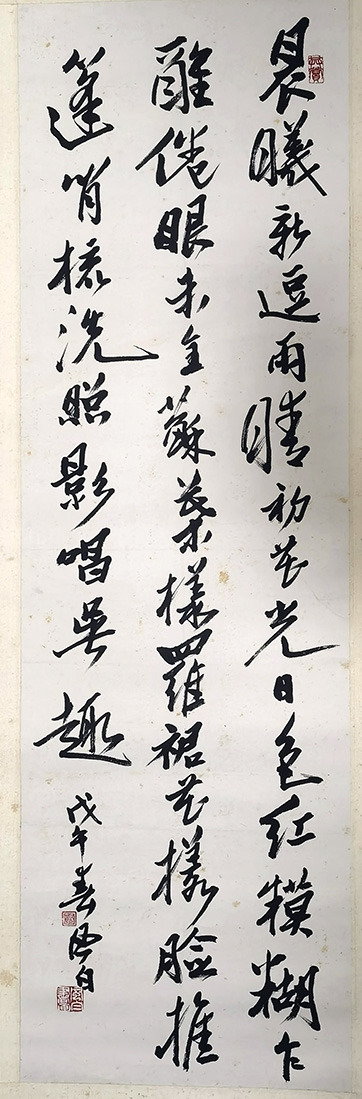 晨曦新逗雨晴初花光日色红模糊乍
醒倦眼未全蘇葉樣羅裙花樣臉推
篷梳洗照影唱吴趣
戊午春白